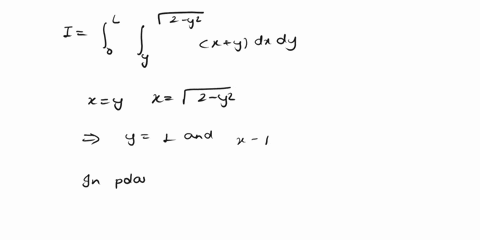 I = ∫₀^L ∫_y^√(2-y²) (x+y) dx dy
x = y x = √(2-y²)
⇒ y = 1 and x - 1
In pola